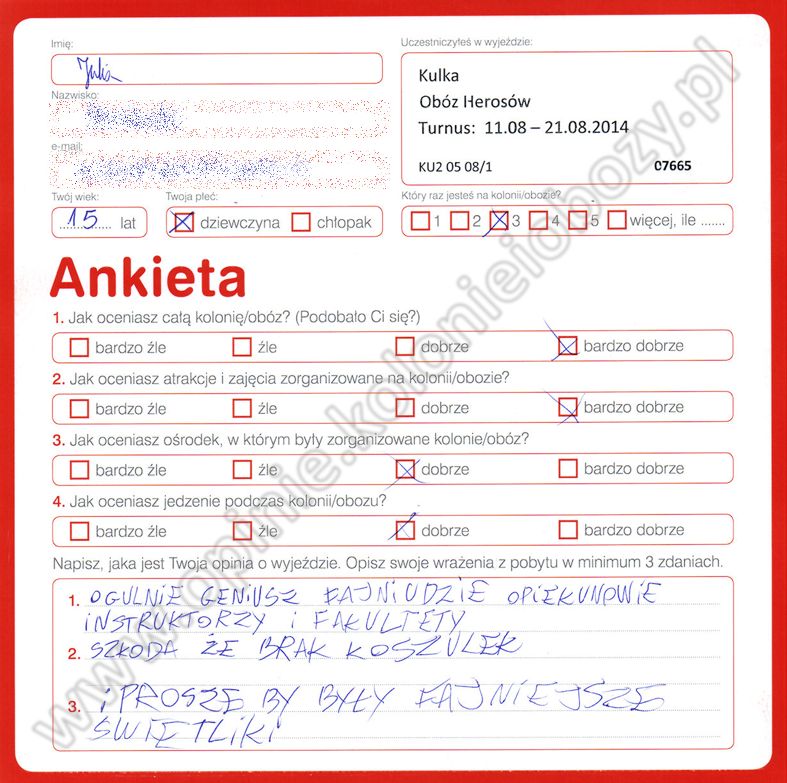 Imię:
Julia
Nazwisko:
e-mail:
Uczestniczyłeś w wyjeździe:
Kulka
Obóz Herosów
Turnus: 11.08 – 21.08.2014
KU2 05 08/1 07665
Twój wiek:
15 lat
Twoja płeć:
dziewczyna chłopak
Który raz jesteś na kolonii/obozie?
1 2 3 4 5 więcej, ile .......
Ankieta
1. Jak oceniasz całą kolonię/obóz? (Podobało Ci się?)
bardzo źle źle dobrze bardzo dobrze
2. Jak oceniasz atrakcje i zajęcia zorganizowane na kolonii/obozie?
bardzo źle źle dobrze bardzo dobrze
3. Jak oceniasz ośrodek, w którym były zorganizowane kolonie/obóz?
bardzo źle źle dobrze bardzo dobrze
4. Jak oceniasz jedzenie podczas kolonii/obozu?
bardzo źle źle dobrze bardzo dobrze
Napisz, jaka jest Twoja opinia o wyjeździe. Opisz swoje wrażenia z pobytu w minimum 3 zdaniach.
1. OGULNIE GENIUSZ FAJNI UDZIE OPIEKUNOWIE
INSTRUKTORZY i FAKULTETY
2. SZKODA ŻE BRAK KOSZULEK
3. i PROSZĘ BY BYŁY FAJNIEJSZE
ŚWIETLIKI
www.opinie.kolonieiobozy.pl